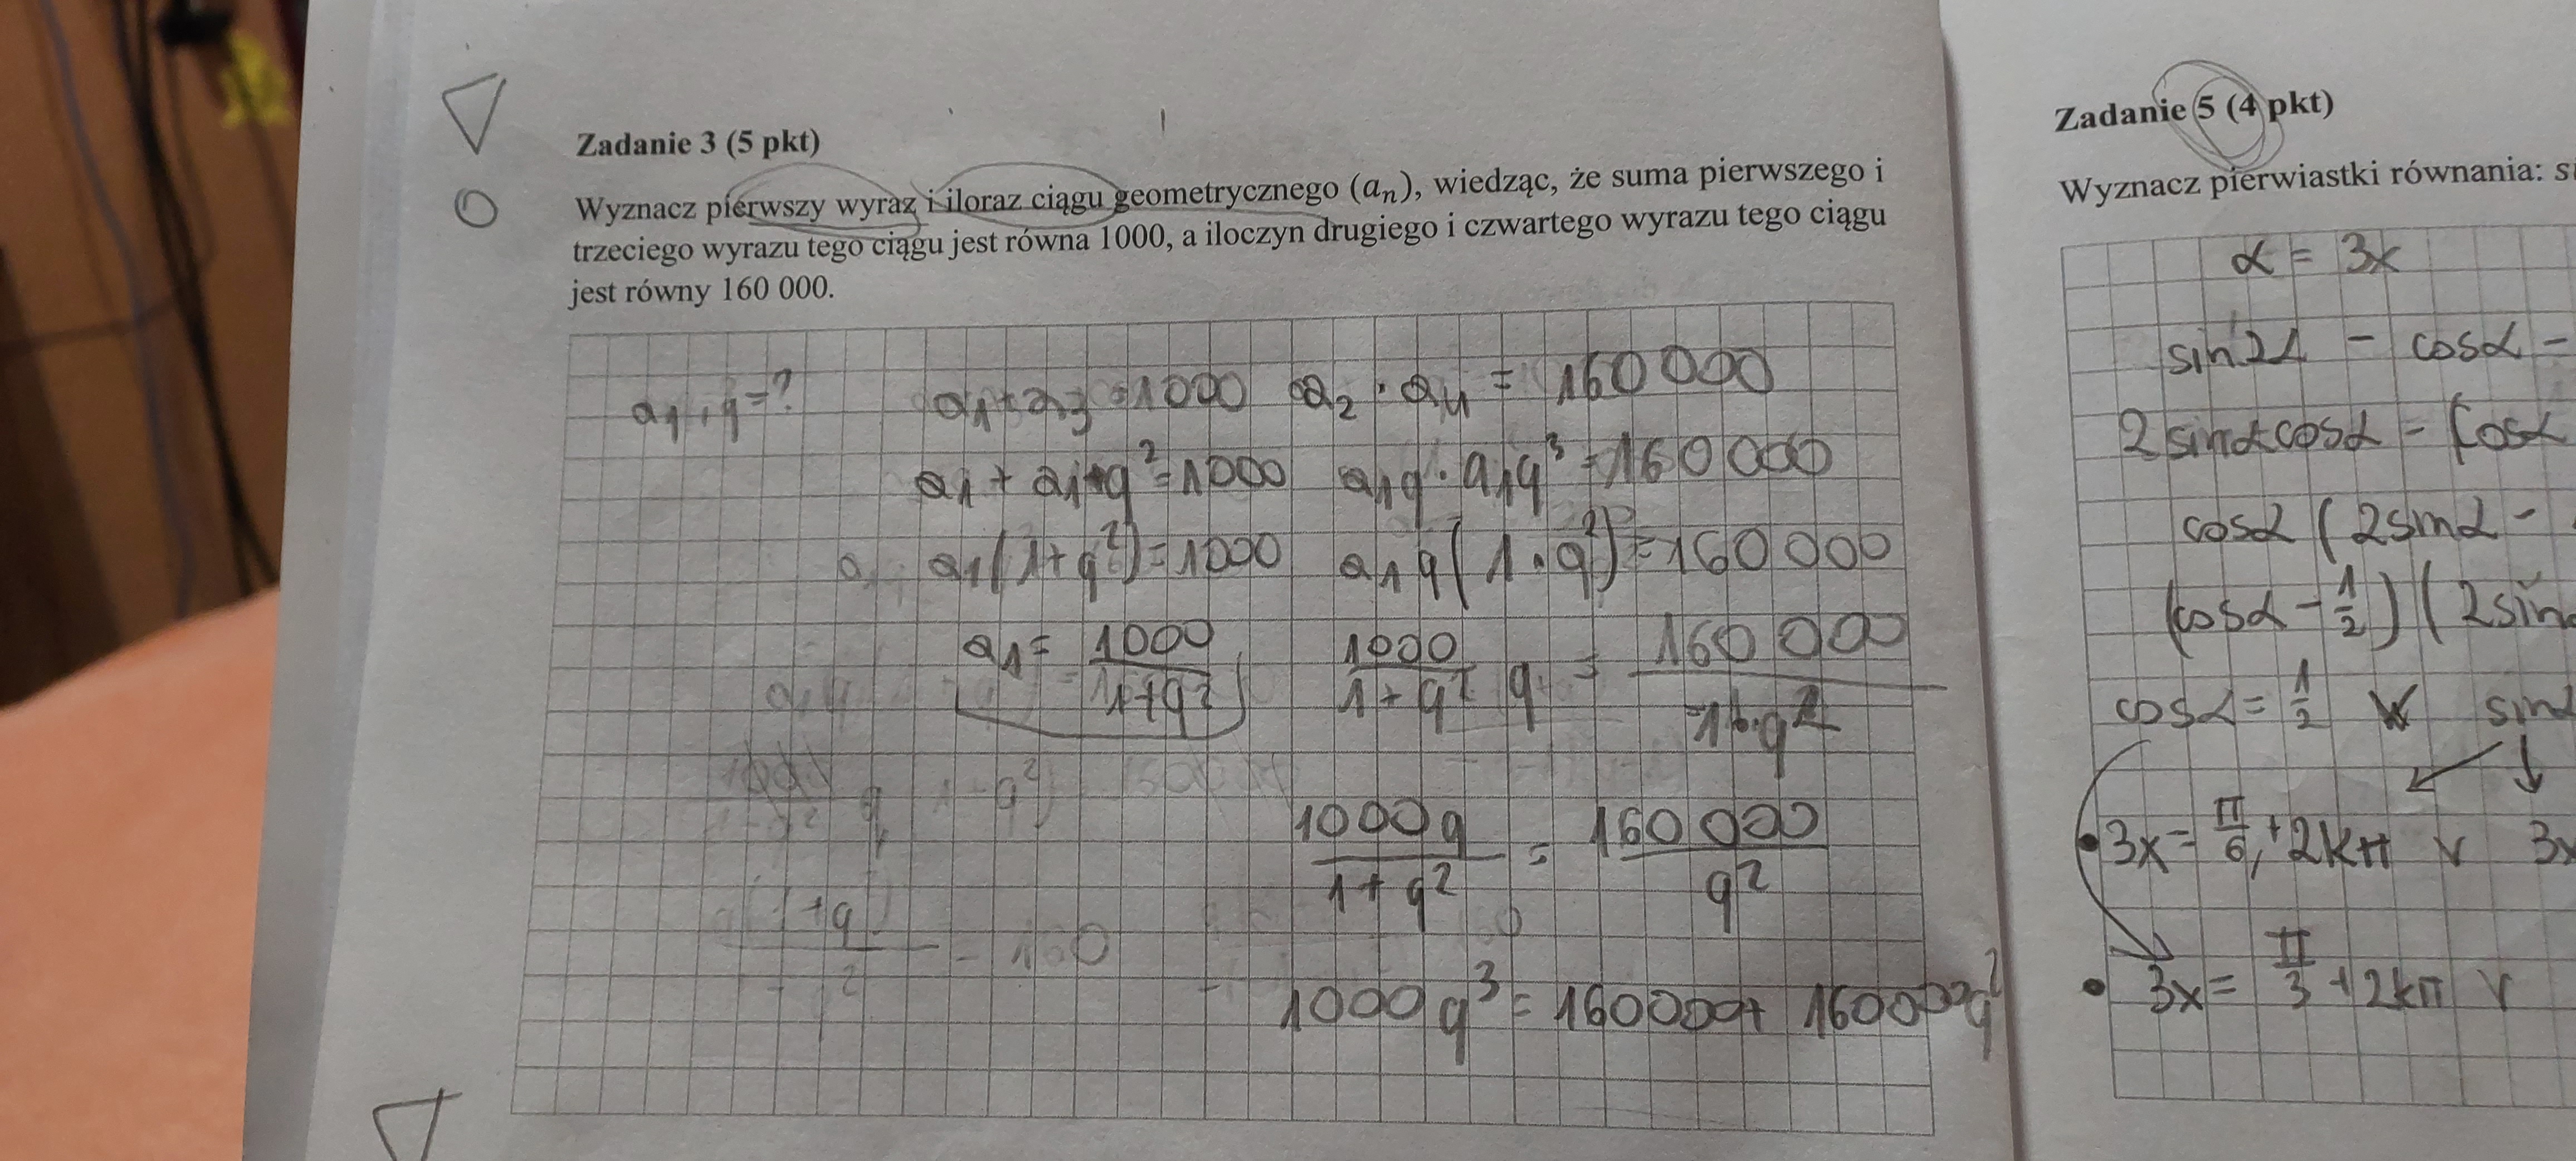 Zadanie 3 (5 pkt)
Wyznacz pierwszy wyraz i iloraz ciągu geometrycznego (aₙ), wiedząc, że suma pierwszego i
trzeciego wyrazu tego ciągu jest równa 1000, a iloczyn drugiego i czwartego wyrazu tego ciągu
jest równy 160 000.
a₁, q = ? a₁ + a₃ = 1000 a₂ · a₄ = 160 000
a₁ + a₁q² = 1000 a₁q · a₁q³ = 160 000
a₁(1+q²) = 1000 a₁q(1·q²) = 160 000
a₁ = 1000/(1+q²) 1000/(1+q²) q = 160 000/(1·q²)
1000q/(1+q²) = 160 000/q²
1000q³ = 160000 + 160000q²
Zadanie 5 (4 pkt)
Wyznacz pierwiastki równania:
α = 3x
sin2α - cosα -
2sinαcosα - cosα
cosα (2sinα -
(cosα - 1/2)(2sin
cosα = 1/2 ∨ sinα
3x = π/6 + 2kπ ∨ 3x
3x = π/3 + 2kπ ∨